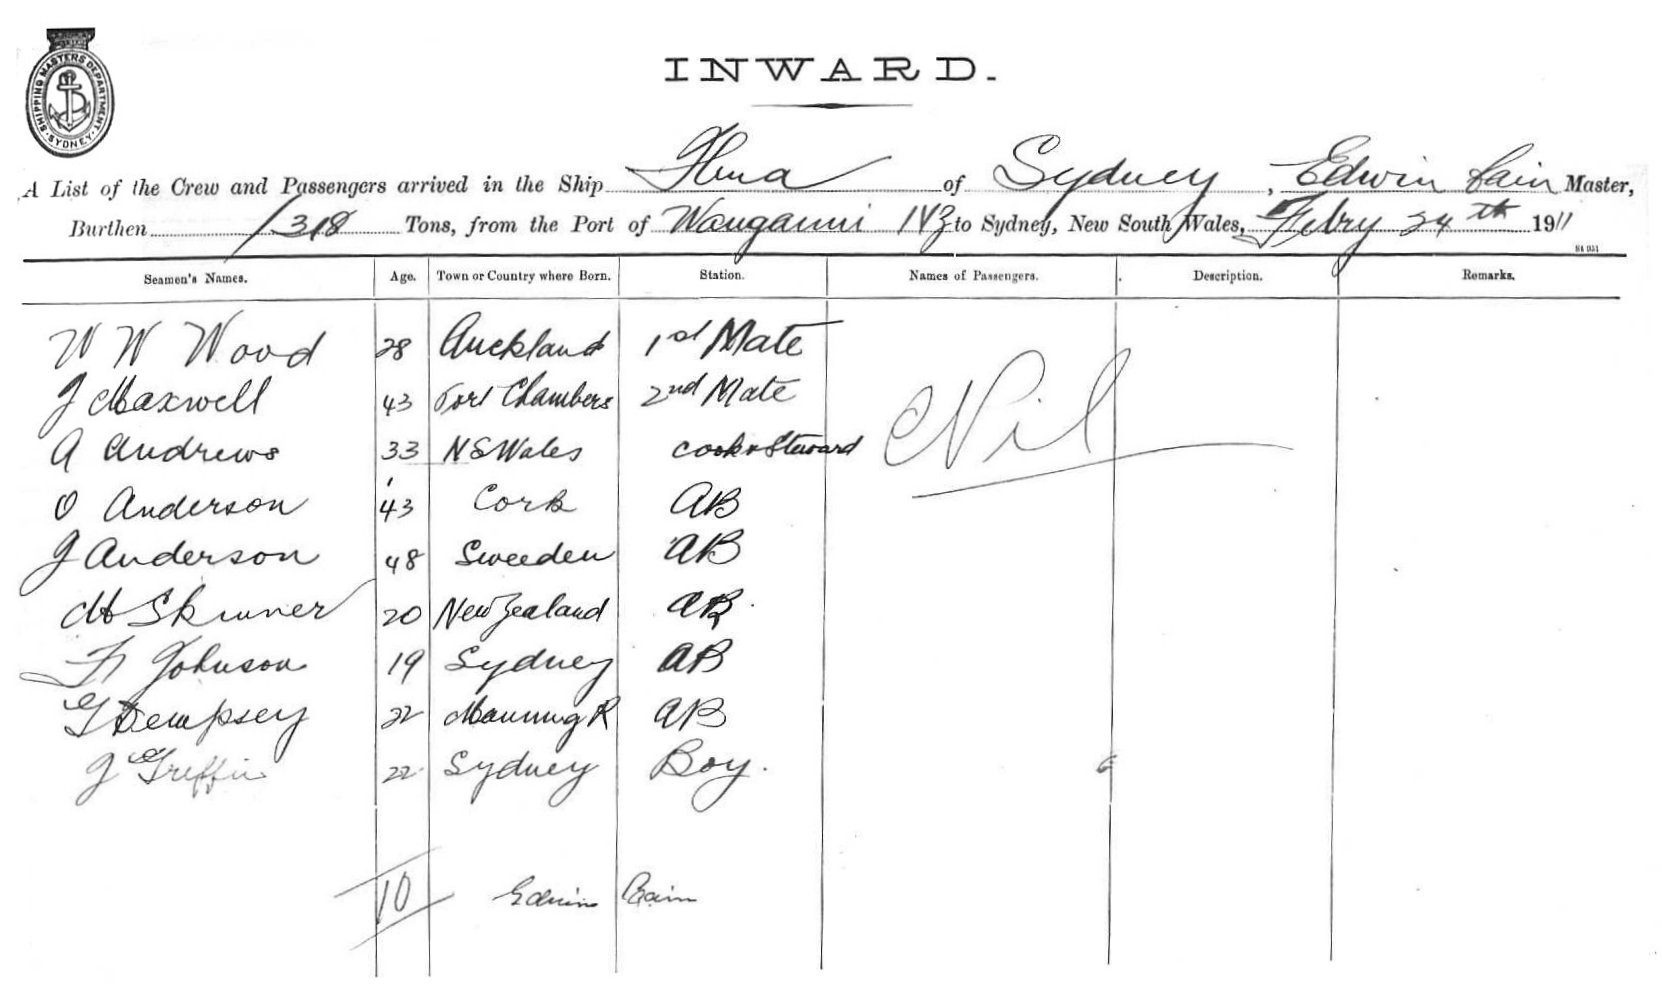 SHIPPING MASTERS DEPARTMENT. SYDNEY.
INWARD.
A List of the Crew and Passengers arrived in the Ship of Sydney, Edwin Bain Master,
Burthen 318 Tons, from the Port of Wanganui NZ to Sydney, New South Wales, Febry 24th 1911
Seamen's Names. Age. Town or Country where Born. Station. Names of Passengers. Description. Remarks.
W W Wood 28 Auckland 1st Mate
J Maxwell 43 Port Chambers 2nd Mate Nil
A Andrews 33 N S Wales Cook & Steward
O Anderson 43 Cork AB
J Anderson 48 Sweeden AB
H Skinner 20 New Zealand AB
F Johnson 19 Sydney AB
G Dempsey 22 Manning R AB
J Griffin 22 Sydney Boy.
10 Edwin Bain